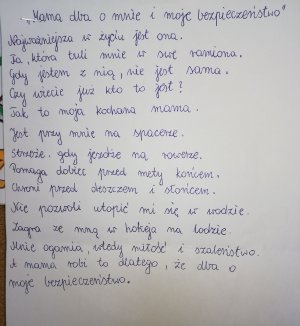 „Mama dba o mnie i moje bezpieczeństwo"
Najważniejsza w życiu jest ona.
Ta, która tuli mnie w swe ramiona.
Gdy jestem z nią, nie jest sama.
Czy wiecie już kto to jest?
Tak, to moja kochana mama.
Jest przy mnie na spacerze.
Strzeże, gdy jeżdżę na rowerze.
Pomaga dobiec przed mety końcem.
Chroni przed deszczem i słońcem.
Nie pozwoli utopić mi się w wodzie.
Zagra ze mną w hokeja na lodzie.
Mnie ogarnia, wtedy miłość i szaleństwo.
A mama robi to dlatego, że dba o
moje bezpieczeństwo.